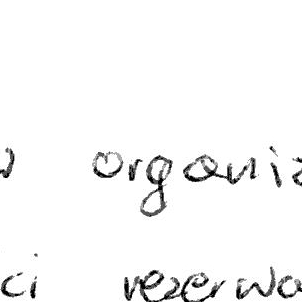 organiz
ci rezerwa